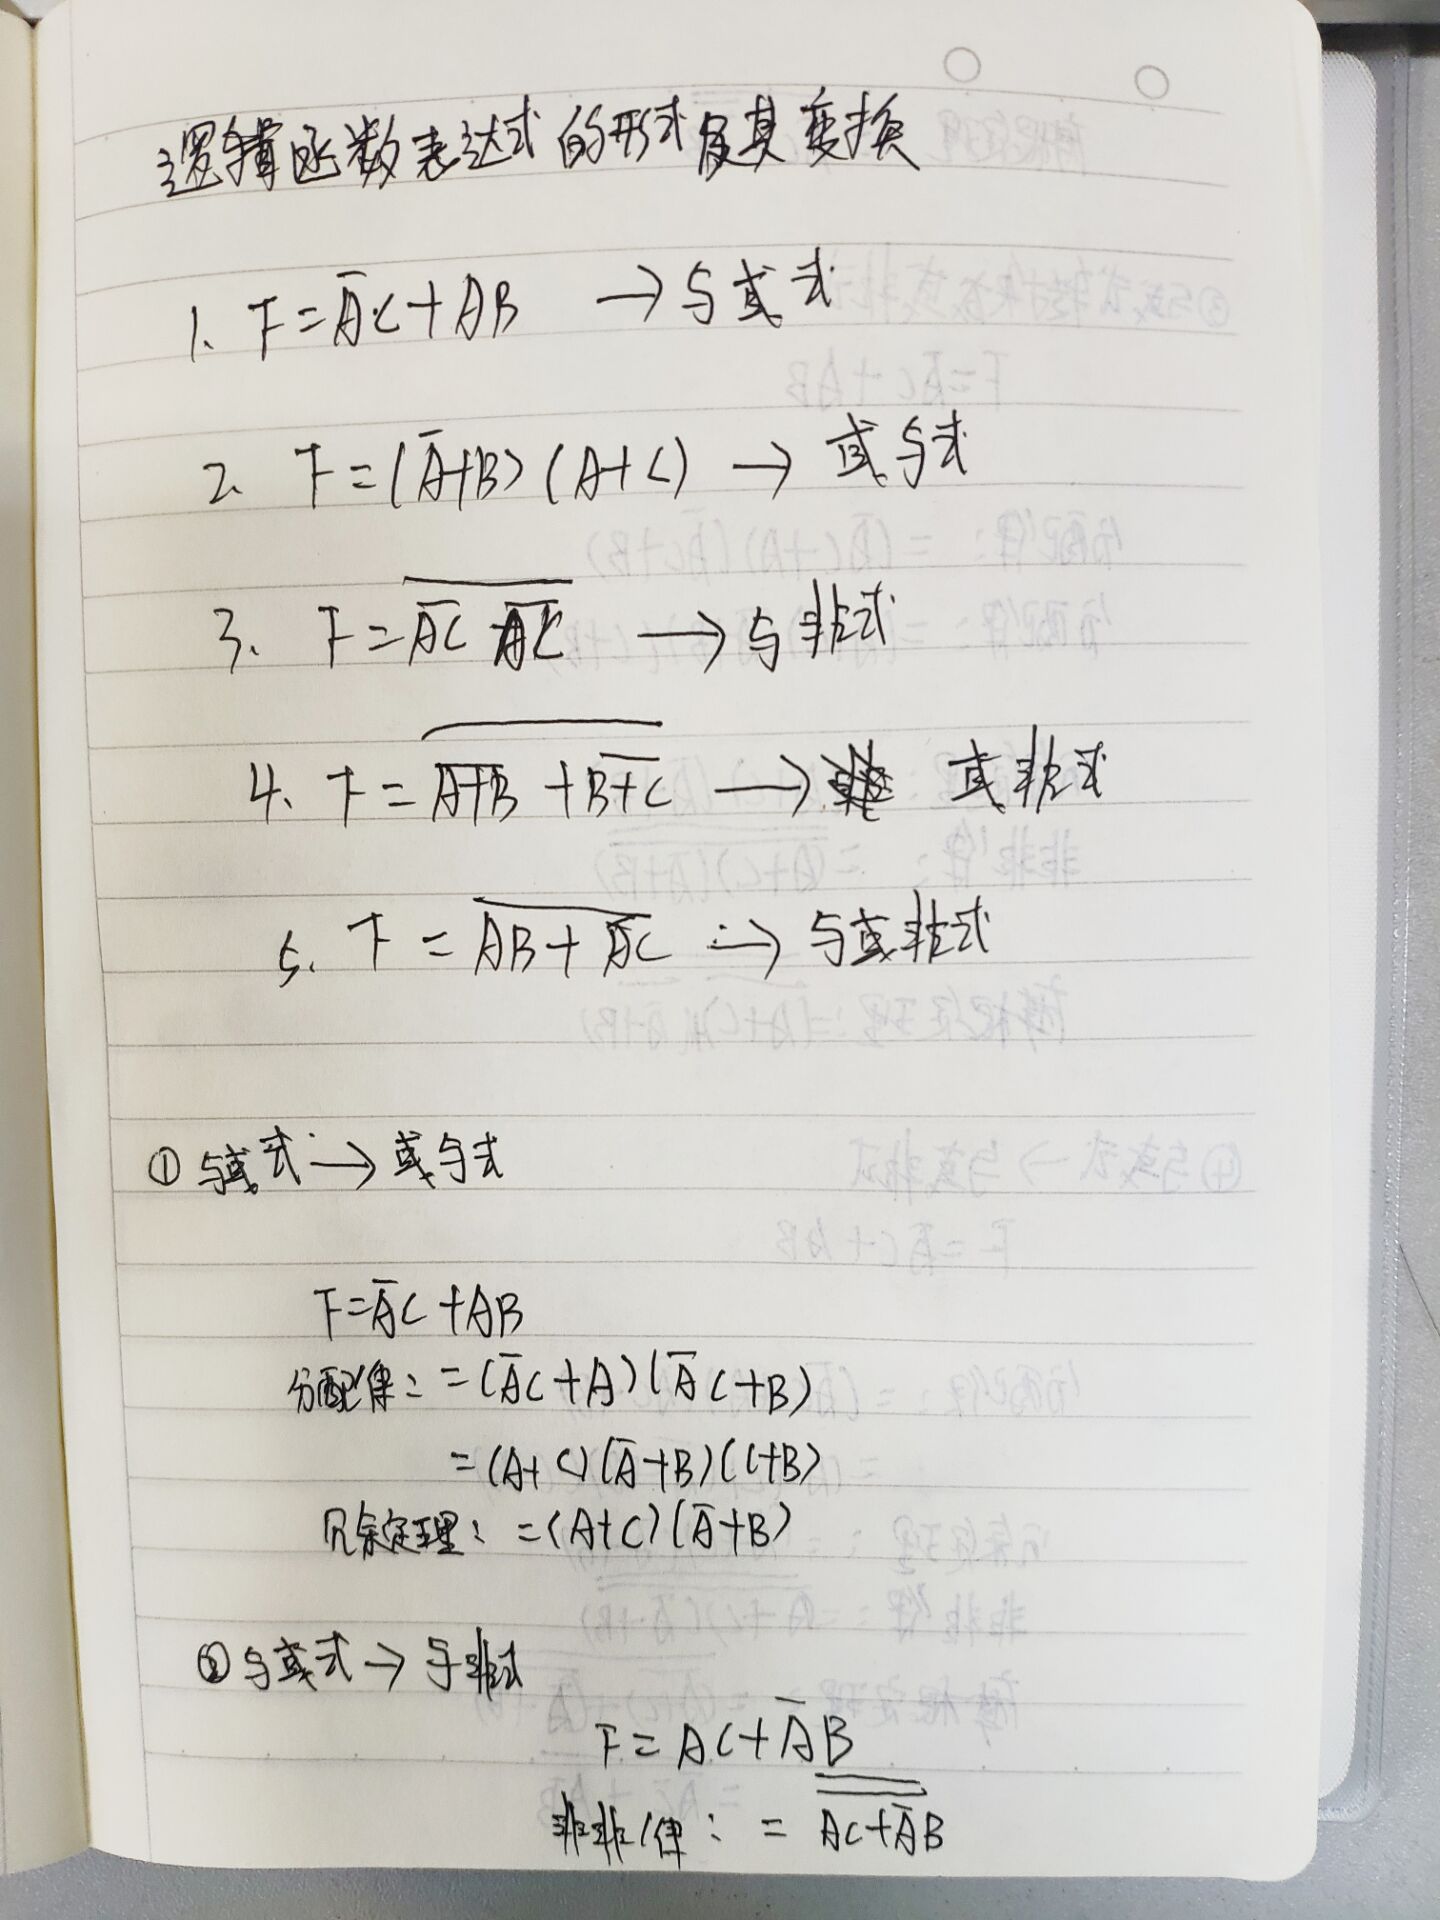 逻辑函数表达式的形式及其变换
1. F=A̅C+AB →与或式
2. F=(A̅+B)(A+C) → 或与式
3. F=\overline{\overline{AC} \overline{AC}} → 与非式
4. F=\overline{\overline{A+B}+\overline{B+C}} → 或非式
5. F=\overline{AB+A̅C} → 与或非式
① 与或式 → 或与式
F=A̅C+AB
分配律: =(A̅C+A)(A̅C+B)
=(A+C)(A̅+B)(C+B)
冗余定理: =(A+C)(A̅+B)
② 与或式 → 与非式
F=AC+A̅B
非非律: =\overline{\overline{AC+A̅B}}